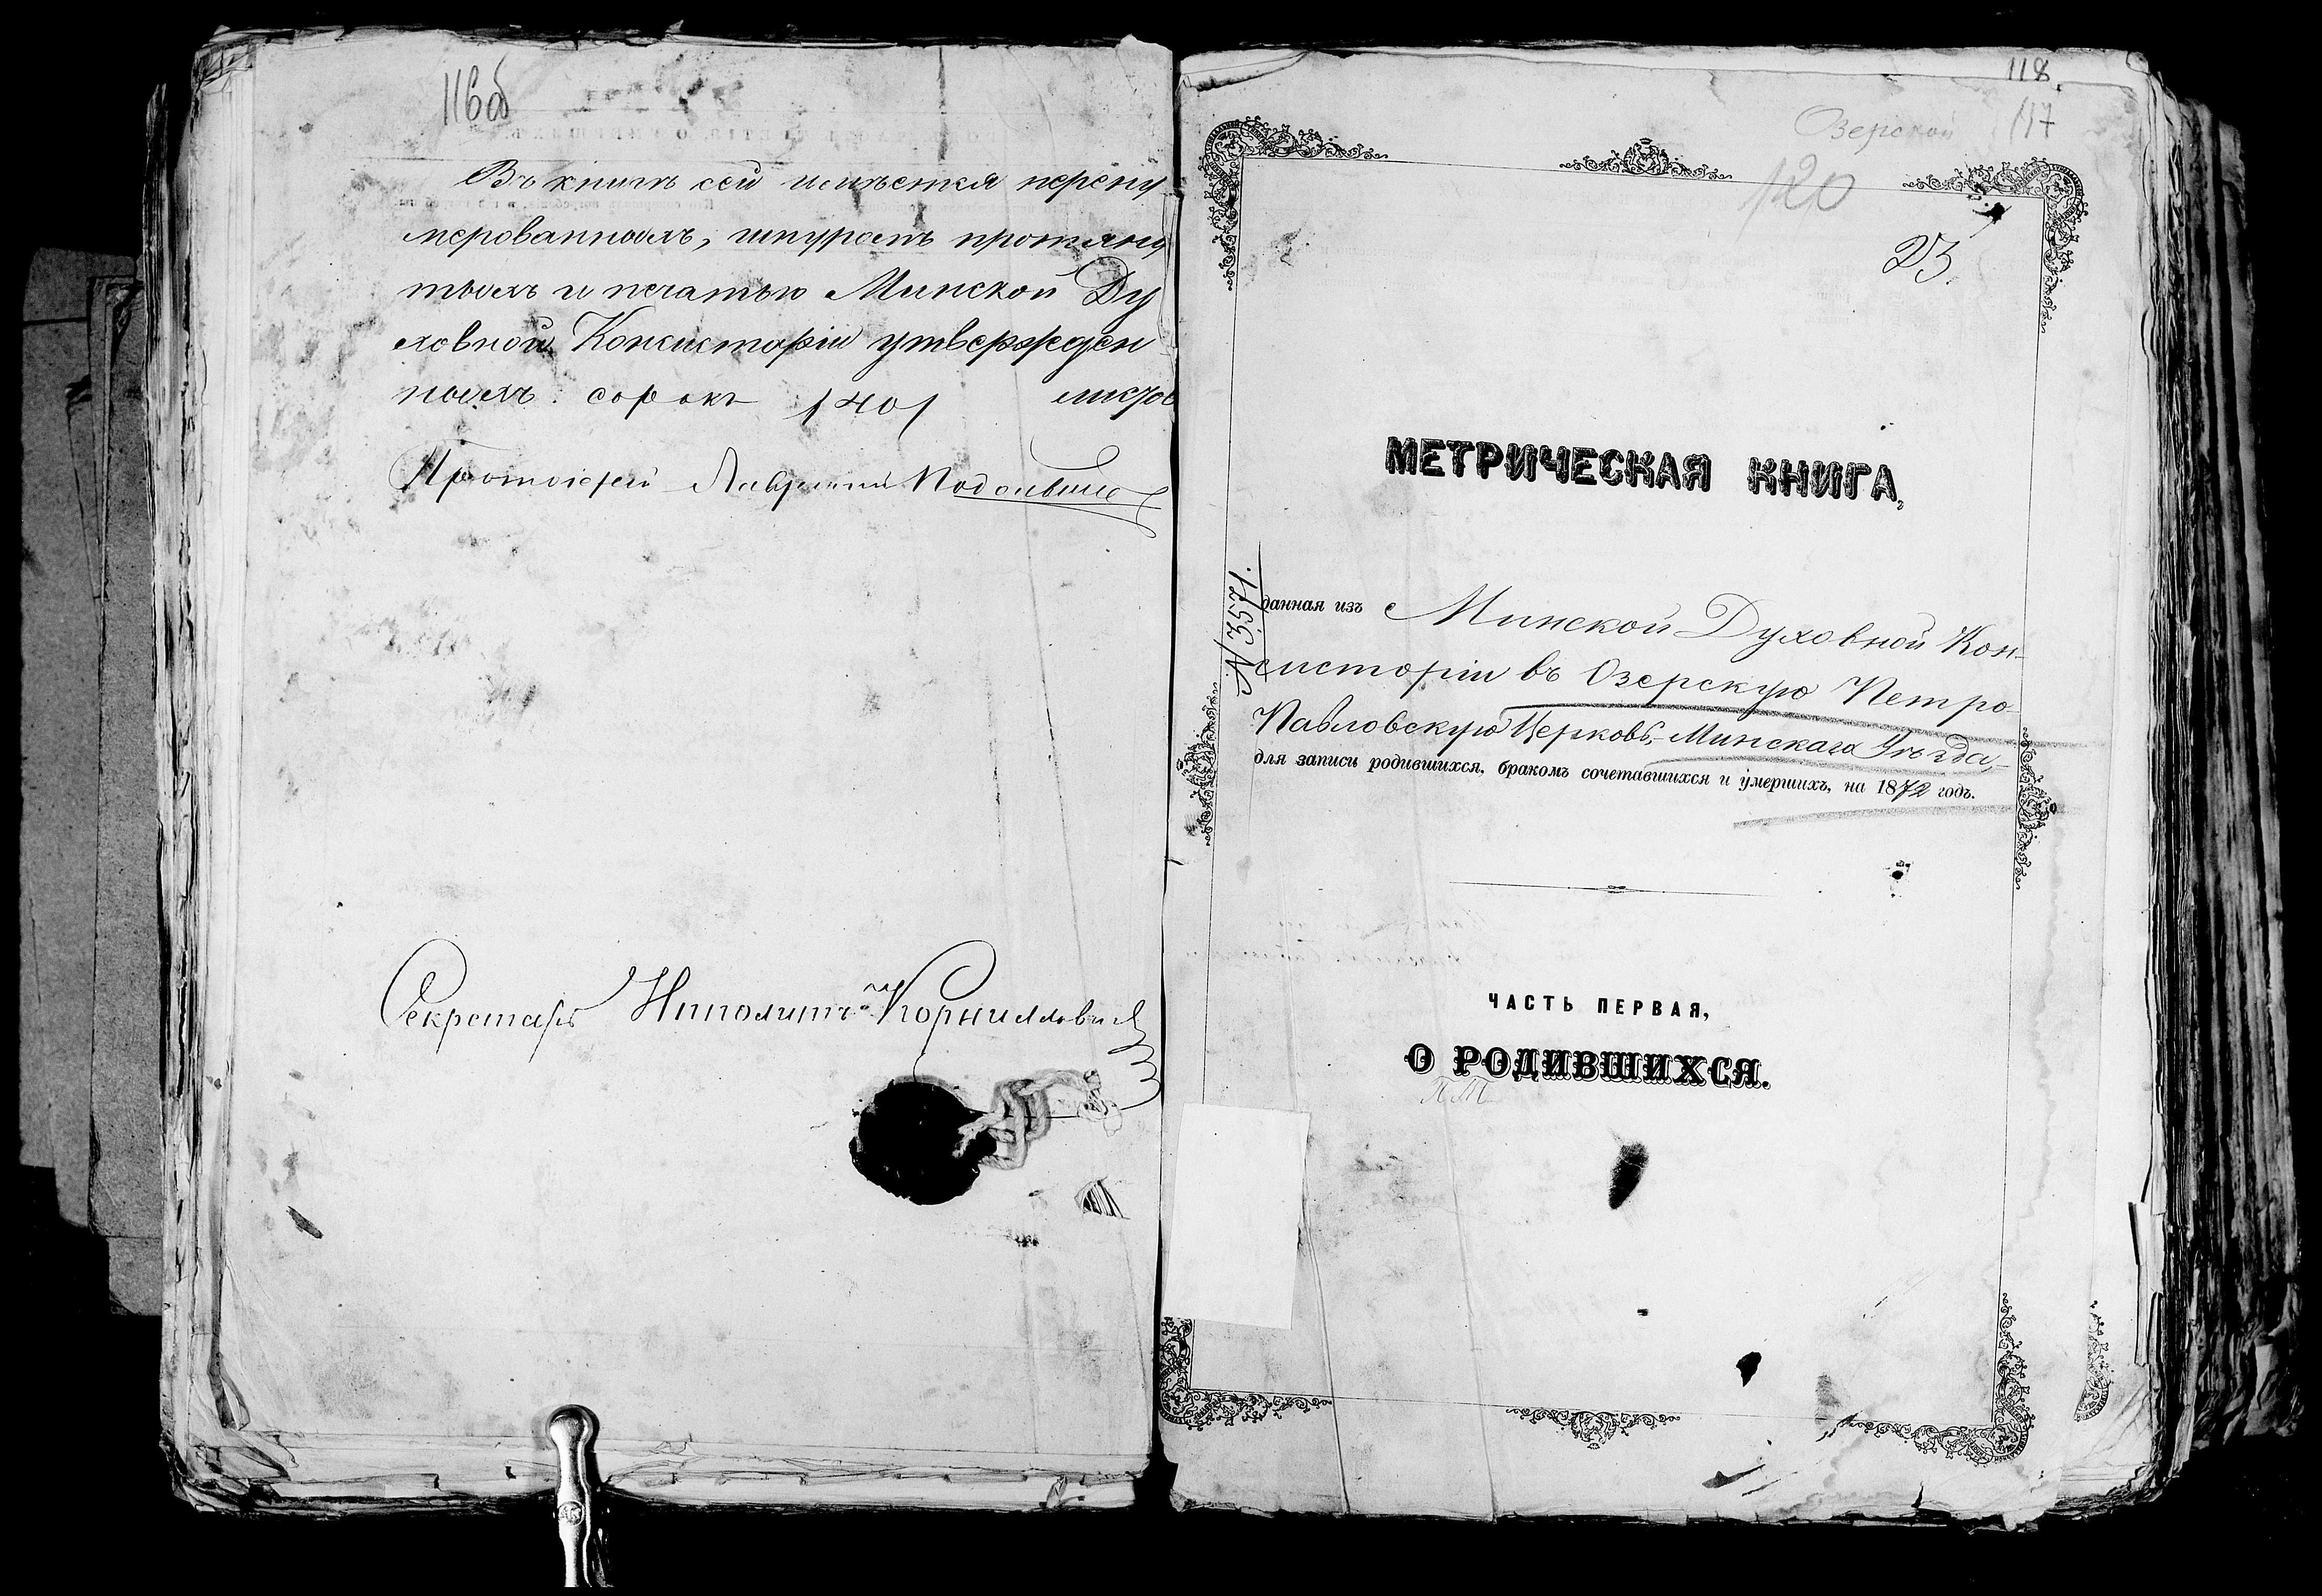 116об
Въ книгѣ сей имѣется перену
мерованныхъ, шнуромъ протяну
тыхъ и печатью Минской Ду
ховной Консисторіи утвержден
ныхъ сорокъ /40/ листов
Протоіерей
Секретарь Ипполитъ Корниловичъ
118
117
Озерской
120
23.
МЕТРИЧЕСКАЯ КНИГА,
№ 3571.
данная изъ Минской Духовной Кон-
систоріи въ Озерскую Петро-
Павловскую Церковь, Минскаго Уѣзда,
для записи родившихся, бракомъ сочетавшихся и умершихъ, на 1872 годъ.
ЧАСТЬ ПЕРВАЯ,
О РОДИВШИХСЯ.